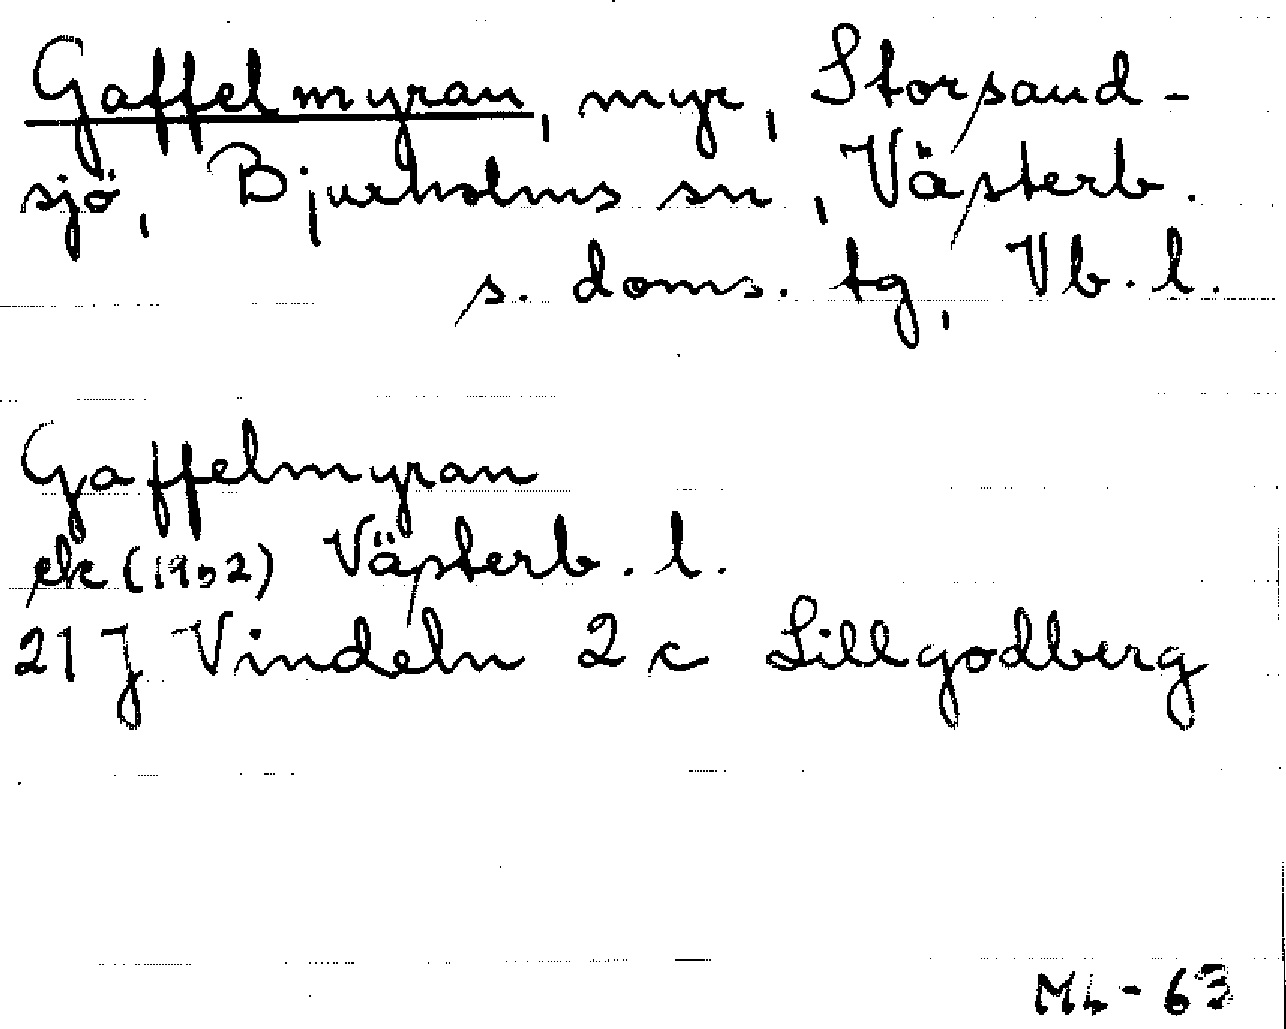 Gaffelmyran, myr, Storsand-
sjö, Bjurholms sn, Västerb.
s. doms. tg, Vb. l.
Gaffelmyran
ek (1952) Västerb. l.
21 J Vindeln 2 c Lillgodberg
ML - 63